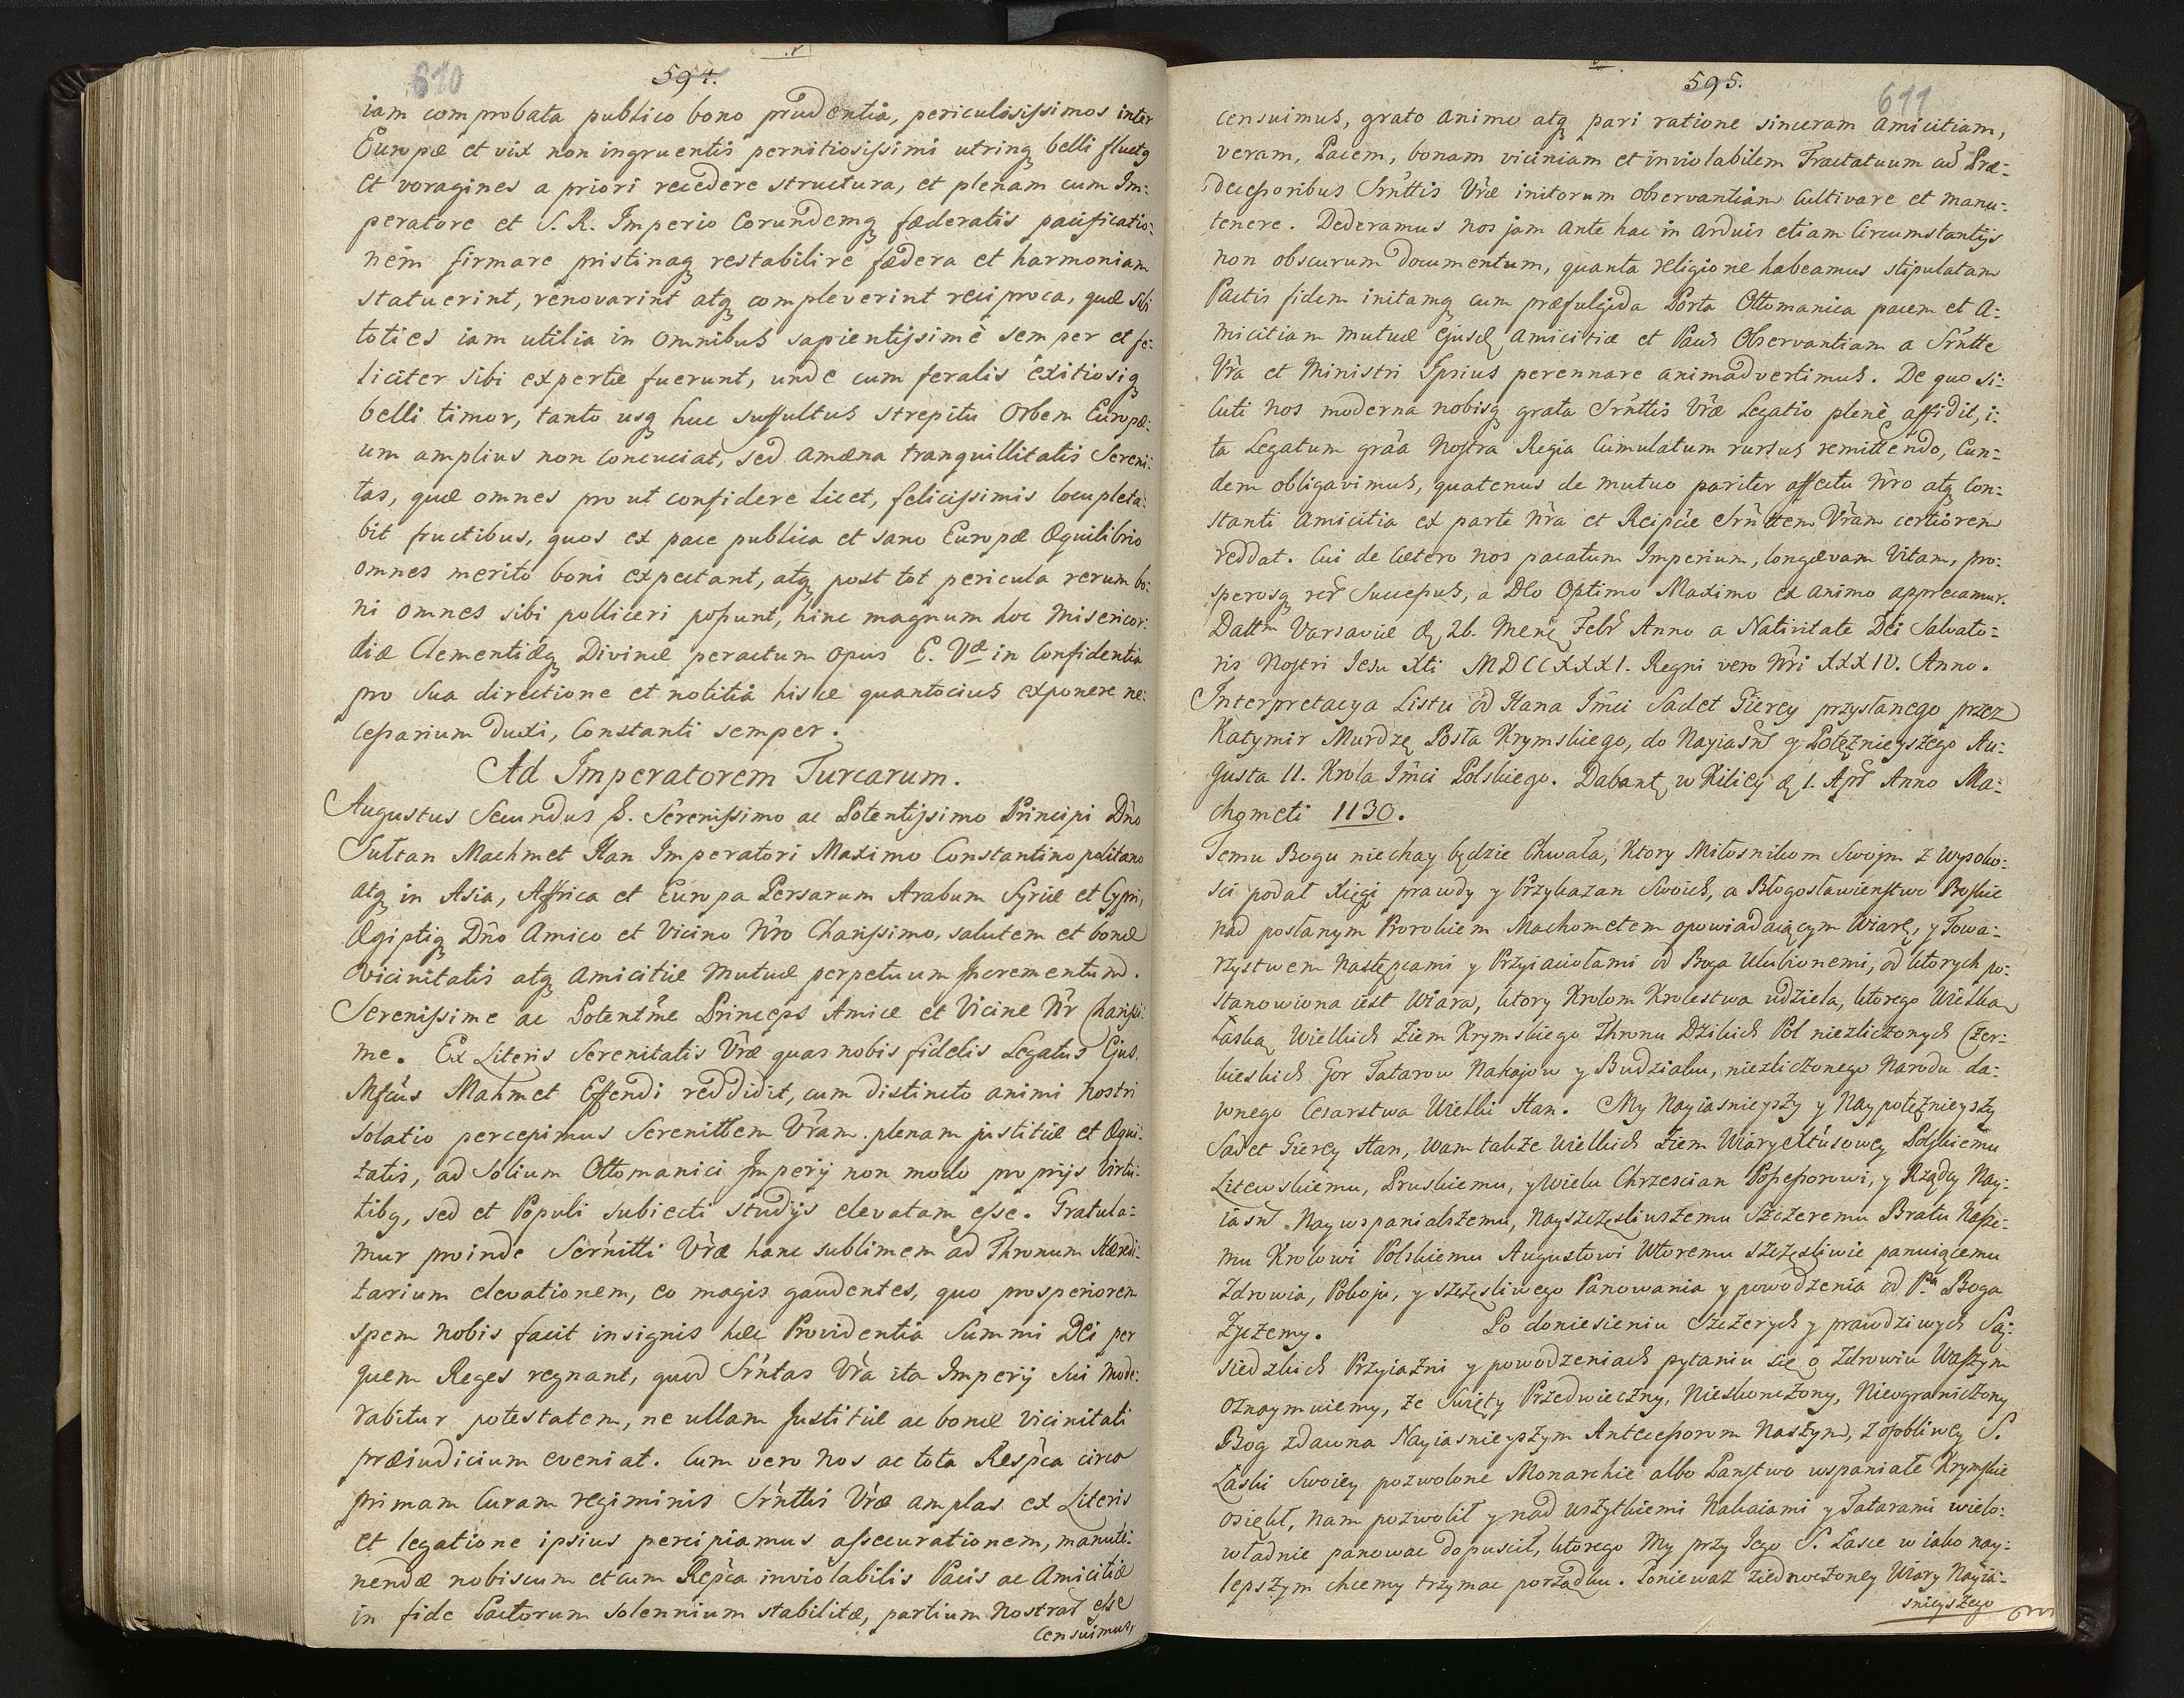 610
594.
iam comprobata publico bono prudentia, periculosissimos inter
Europæ et vix non ingruentis pernitiosissimi utrinq belli fluctq
et voragines a priori recedere structura, et plenam cum Im:
peratore et S. R. Imperio Eorundemq fæderatis pacificatio:
nem firmare pristinaq restabilire fædera et harmoniam
statuerint, renovarint atq compleverint reciproca, quæ sibi
toties iam utilia in omnibus sapientissimè semper et fe:
liciter sibi expertæ fuerunt, unde cum feralis exitiosiq
belli timor, tanto usq huc suffultus strepitu Orbem Europæ:
um amplius non concuciat, sed amæna tranquillitatis Sereni:
tas, quæ omnes pro ut confidere licet, felicissimis locupleta:
bit fructibus, quos ex pace publica et sano Europæ Æquilibrio
omnes merito boni expectant, atq post tot pericula rerum bo:
ni omnes sibi polliceri possunt, hinc magnum hoc Misericor:
diæ Clementiæq Divinæ peractum opus E. Væ in Confidentia
pro sua directione et notitiâ hisce quantocius exponere ne:
cessarium duxi, Constanti semper.
Ad Imperatorem Turcarum.
Augustus Secundus &. Serenissimo ac Potentissimo Principi Dño
Sultan Machmet Han Imperatori Maximo Constantinopolitano
atq in Asia, Affrica et Europa Persarum Arabum Syriæ et Cypri,
Ægiptiq Dño Amico et Vicino Nr̃o Charissimo, salutem et bonæ
vicinitatis atq amicitiæ mutuæ perpetuum Incrementum.
Serenissime ac Potentm̃e Princeps Amice et Vicine Nr̃ Charissi:
me. Ex Literis Serenitatis Vr̃æ quas nobis fidelis Legatus Ejus.
Mfcus Mahmet Effendi reddidit, cum distincto animi nostri
solatio percepimus Serenittem Vr̃am plenam justitiæ et Æqui:
tatis, ad Solium Ottomanici Imperij non modo proprijs Virtu:
tibq, sed et Populi subiecti studijs elevatam esse. Gratula:
mur proinde Serñitti Vr̃æ hanc sublimem ad Thronum Hæredi:
tarium elevationem, eo magis gaudentes, quo prosperiorem
spem nobis facit insignis hæc Providentia Summi Dei per
quem Reges regnant, quod Srñtas Vr̃a ita Imperij sui mode:
rabitur potestatem, ne ullam Justitiæ ac bonæ vicinitati
præiudicium eveniat. Cum vero Nos ac tota Resp̃ca circa
primam Curam regiminis Srñttis Vr̃æ amplas ex Literis
et legatione ipsius percipiamus assecurationem, manute:
nendæ nobiscum et cum Rep̃ca inviolabilis Pacis ac Amicitiæ
in fide Pactorum solennium stabilitæ, partium Nostrar̃ esse
Censuimus,
595.
611
censuimus, grato animo atq pari ratione sinceram amicitiam,
veram, Pacem, bonam viciniam et inviolabilem Tractatuum cũ Præ:
decessoribus Srñttis Vr̃æ initorum observantiam Cultivare et manu:
tenere. Dederamus nos jam ante hac in arduis etiam Circumstantijs
non obscurum documentum, quanta religione habeamus stipulatam
Pactis fidem initamq cum præfulgida Porta Ottomanica pacem et A:
micitiam mutuæ Ejusd amicitiæ et Pacis Observantiam a Srñtte
Vr̃a et Ministri Ipsius perennare animadvertimus. De quo si:
cuti nos moderna nobisq grata Srñttis Vr̃æ Legatio plenè affidit, i:
ta Legatum graa Nostra Regia Cumulatum rursus remittendo, Eun:
dem obligavimus, quatenus de mutuo pariter affectu Nr̃o atq Con:
stanti Amicitia ex parte Nr̃a et Reipcæ Srñttem Vr̃am certiorem
reddat. Cui de Cætero nos pacatum Imperium, longævam Vitam, pro:
sperosq rer̃ Successus, a Deo Optimo Maximo ex animo apprecamur.
Dattm Varsaviæ d 26. Mens Febr̃ Anno a Nativitate Dei Salvato:
ris Nostri Jesu Xti MDCCXXXI. Regni vero Nr̃i XXXIV. Anno.
Interpretacya Listu od Hana Jm̃ci Sadet Gierey przysłanego przez
Katymir Murdzę Posła Krymskiego, do Nayiasñ y Potęznieyszego Au:
gusta II. Krola Jm̃ci Polskiego. Dabant w Kilicy d 1. Apr̃ Anno Ma:
chometi 1130.
Temu Bogu niechay będzie Chwała, Ktory Miłosnikom Swoim z Wysoko:
sci podał Xięgi prawdy y Przykazan Swoich, a Błogosławienstwo Boskie
nad posłanym Prorokiem Machometem opowiadaiącym Wiarę, y Towa:
rzystwem Następcami y Przyiaciołami od Boga Ulubionemi, od ktorych po:
stanowiona iest Wiara, ktory Krolom Krolestwa udziela, ktorego Wielka
Łaska Wielkich Ziem Krymskiego Thronu Dzikich Pol niezliczonych Czer:
kieskich Gor Tatarow Nahajow y Budziaku, niezliczonego Narodu da:
wnego Cesarstwa Wielki Han. My Nayiasnieyszy y Naypotęznieyszy
Sadet Gierey Han, Wam także Wielkich Ziem Wiary Xtusowey Polskiemu
Litewskiemu, Pruskiemu, y Wielu Chrzescian Possessorowi, y Rządcy Nay:
iasñ. Naywspanialszemu, Nayszczęsliwszemu Szczeremu Bratu Nasze:
mu Krolowi Polskiemu Augustowi Wtoremu szczęsliwie panuiącemu
Zdrowia, Pokoju, y szczęsliwego Panowania y powodzenia od Pa Boga
Zyczemy. Po doniesieniu Szczerych y prawdziwych Są:
siedzkich Przyiazni y powodzeniach pytaniu się o Zdrowiu Waszym
oznaymuiemy, ze Swięty Przedwieczny, Nieskonczony, Nieograniczony
Bog zdawna Nayiasnieyszym Antecessorom Naszym, z osobliwey S.
Łaski Swoiey pozwolone Monarchie albo Panstwo wspaniałe Krymskie
osiągł, nam pozwolił y nad wszytkiemi Nahaiami y Tatarami wielo:
władnie panowac dopuscił, ktorego My przy Jego S. Łasce w iako nay:
lepszym chcemy trzymac porządku. Poniewaz ziednoczoney Wiary Nayia:
snieyszego